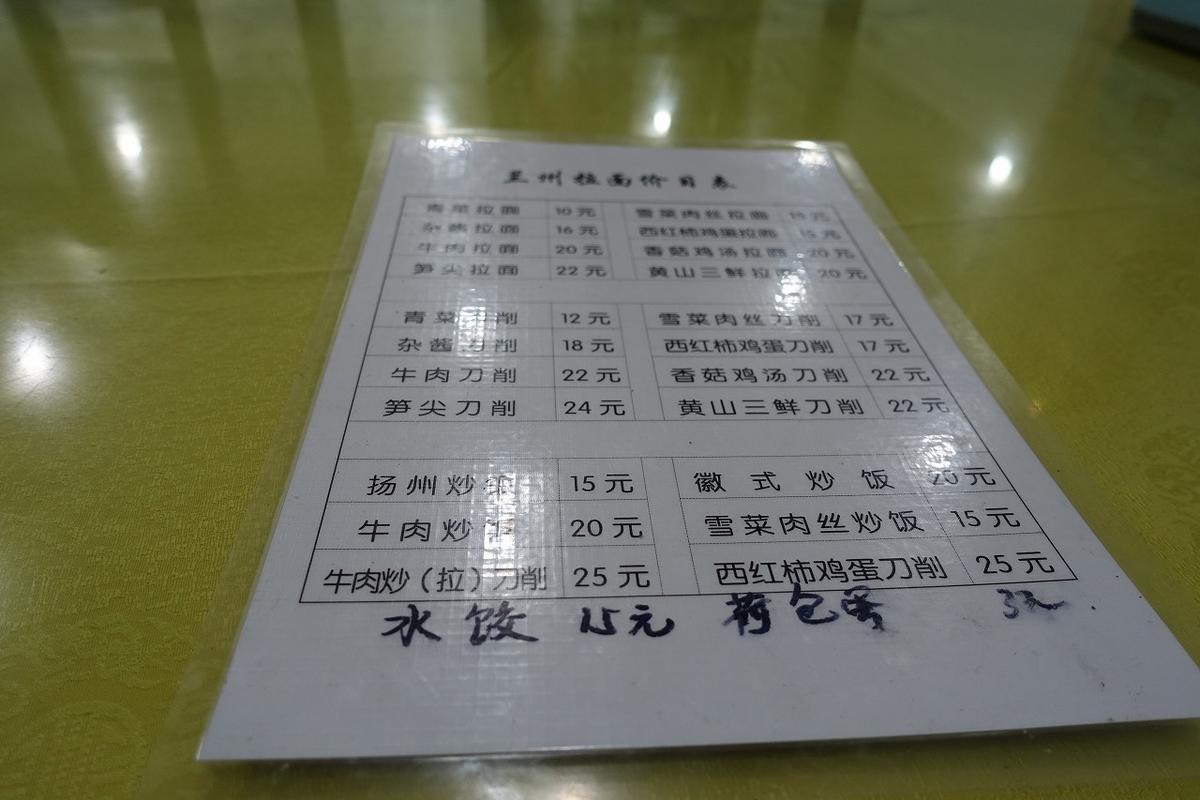 兰州拉面价目表
青菜拉面 10元 雪菜肉丝拉面 15元
杂酱拉面 16元 西红柿鸡蛋拉面 15元
牛肉拉面 20元 香菇鸡汤拉面 20元
笋尖拉面 22元 黄山三鲜拉面 20元
青菜刀削 12元 雪菜肉丝刀削 17元
杂酱刀削 18元 西红柿鸡蛋刀削 17元
牛肉刀削 22元 香菇鸡汤刀削 22元
笋尖刀削 24元 黄山三鲜刀削 22元
扬州炒饭 15元 徽式炒饭 20元
牛肉炒饭 20元 雪菜肉丝炒饭 15元
牛肉炒（拉）刀削 25元 西红柿鸡蛋刀削 25元
水饺 15元 荷包蛋 3元